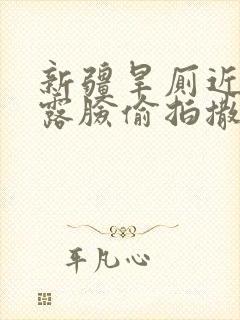 新疆旱厕近
露脸偷拍撒
平凡心